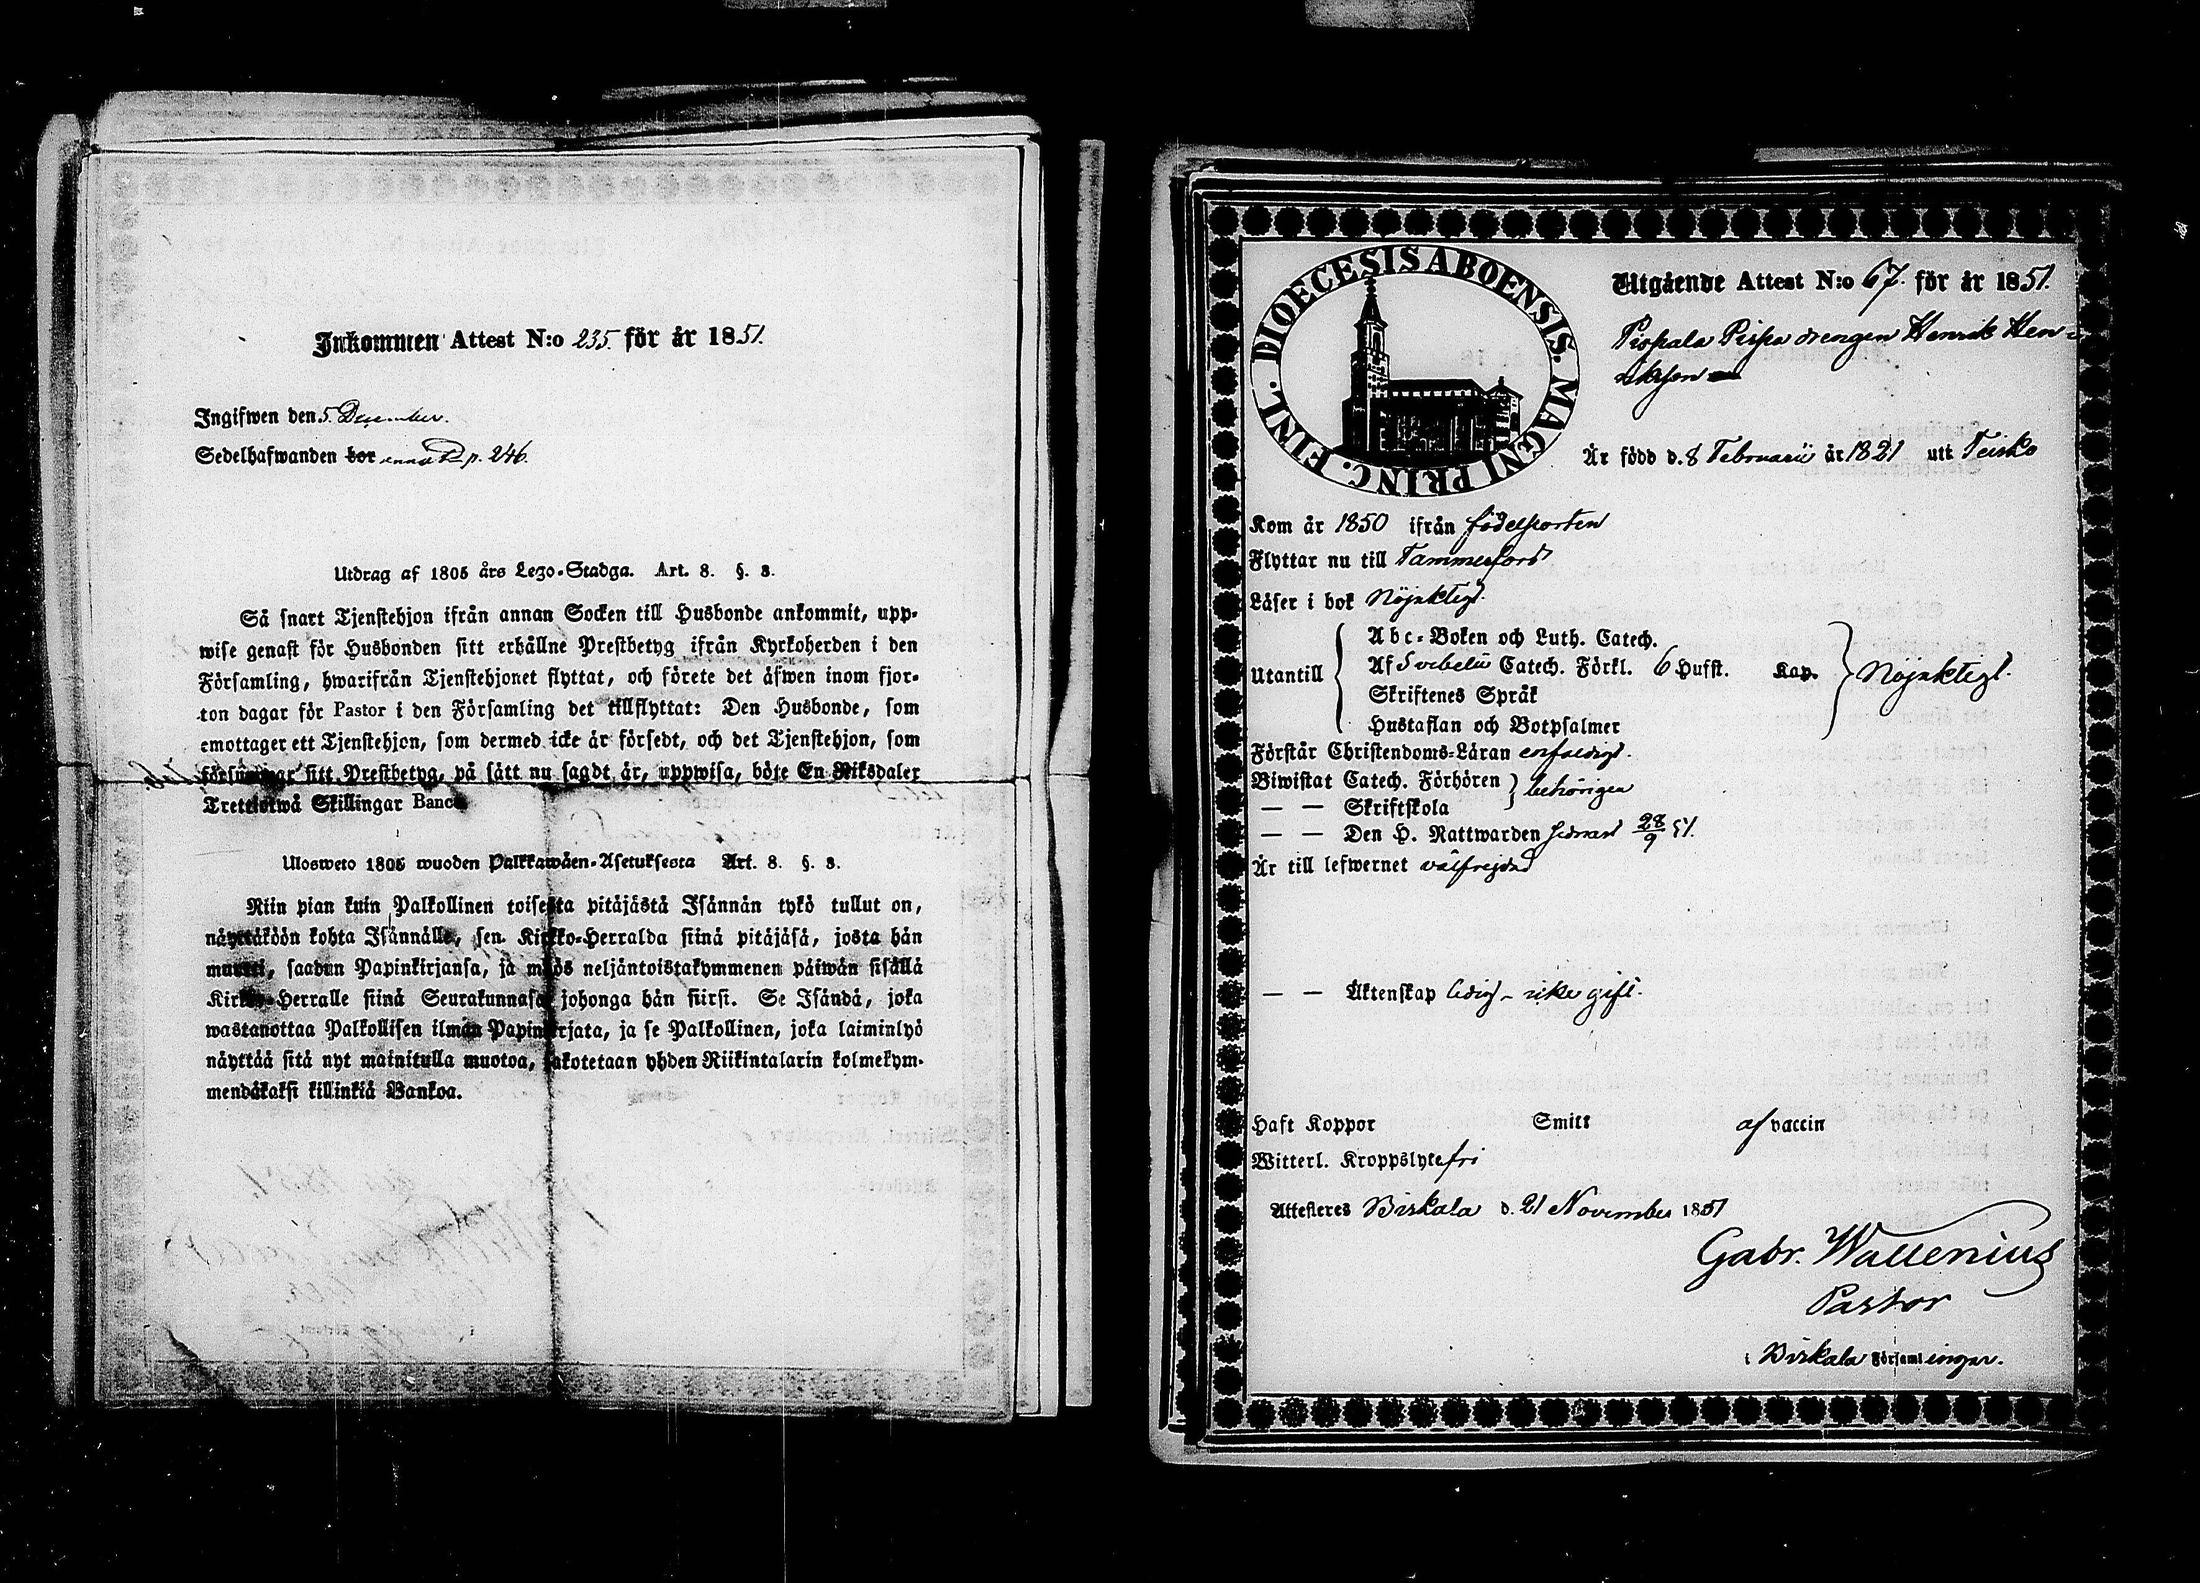 Inkommen Attest N:o 235. för år 1851.
Ingifwen den 5 December.
Sedelhafwanden bor p. 246.
Utdrag af 1805 års Lego-Stadga. Art. 8. §. 3.
Så snart Tjenstehjon ifrån annan Socken till Husbonde ankommit, upp-
wise genast för Husbonden sitt erhållne Prestbetyg ifrån Kyrkoherden i den
Församling, hwarifrån Tjenstehjonet flyttat, och förete det äfwen inom fjor-
ton dagar för Pastor i den Församling det tillflyttat: Den Husbonde, som
emottager ett Tjenstehjon, som dermed icke är försedt, och det Tjenstehjon, som
försummar sitt Prestbetyg, på sätt nu sagdt är, uppwisa, böte En Riksdaler
Trettiotwå Skillingar Banco.
Ulosweto 1805 wuoden Palkkawäen-Asetuksesta Art. 8. §. 3.
Niin pian kuin Palkollinen toisesta pitäjästä Isännän tykö tullut on,
näyttäköön kohta Isännälle, sen Kirkko-Herralda siinä pitäjäsä, josta hän
muutti, saadun Papinkirjansa, ja myös neljäntoistakymmenen päiwän sisällä
Kirkko-Herralle siinä Seurakunnasa johonga hän siirsi. Se Isändä, joka
wastanottaa Palkollisen ilman Papinkirjata, ja se Palkollinen, joka laiminlyö
näyttää sitä nyt mainitulla muotoa, sakotetaan yhden Riikintalarin kolmekym-
mendäkaksi killinkiä Bankoa.
DIOECESIS ABOENSIS. MAGNI PRINC. FINL.
Utgående Attest N:o 67. för år 1851.
Pispala Pispa drengen Henrik Hen-
riksson
Är född d. 8 Februarii år 1821 uti Teisko
Kom år 1850 ifrån födelseorten
Flyttar nu till Tammerfors
Läser i bok Nöjaktigt.
Utantill
Abc-Boken och Luth. Catech.
Af Svebelii Catech. Förkl. 6 Hufst. Kap.
Skriftenes Språk
Hustaflan och Botpsalmer
Nöjaktigt.
Förstår Christendoms-Läran enfaldigt.
Biwistat Catech. Förhören
— — Skriftskola
behörigen
— — Den H. Nattwarden sednast 28/9 51.
Är till lefwernet välfrejdad
— — Äktenskap ledig - icke gift.
Haft Koppor Smitt af vaccin
Witterl. Kroppslyte fri
Attesteres Birkala d. 21 November 1851
Gabr. Wallenius
Pastor
i Birkala Församlingar.